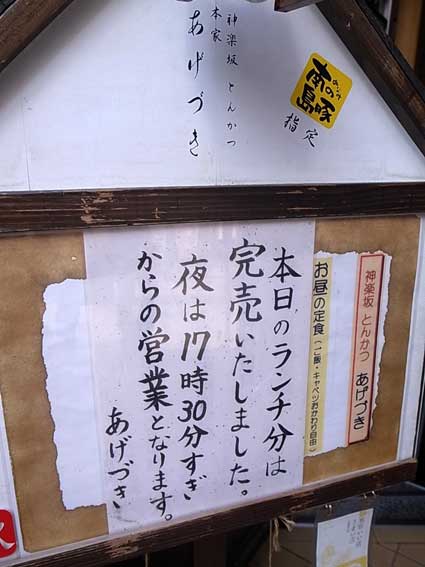 神楽坂 とんかつ
本家
あげづき
南の島豚
指定
神楽坂 とんかつ あげづき
お昼の定食(ご飯・キャベツおかわり自由)
本日のランチ分は
完売いたしました。
夜は17時30分すぎ
からの営業となります。
あげづき